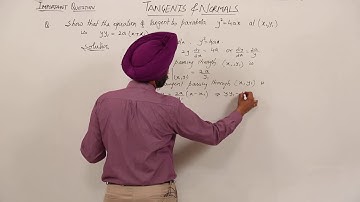 IMPORTANT QUESTION
TANGENTS & NORMALS
Q Show that the equation of tangent to parabola y² = 4ax at (x₁, y₁)
is yy₁ = 2a(x+x₁)
Solution y² = 4ax
2y dy/dx = 4a or dy/dx = 2a/y
passing through (x₁, y₁) is
(x₁, y₁) = 2a/y₁
tangent passing through (x₁, y₁) is
= 2a/y₁ (x-x₁) ⇒ yy₁ -